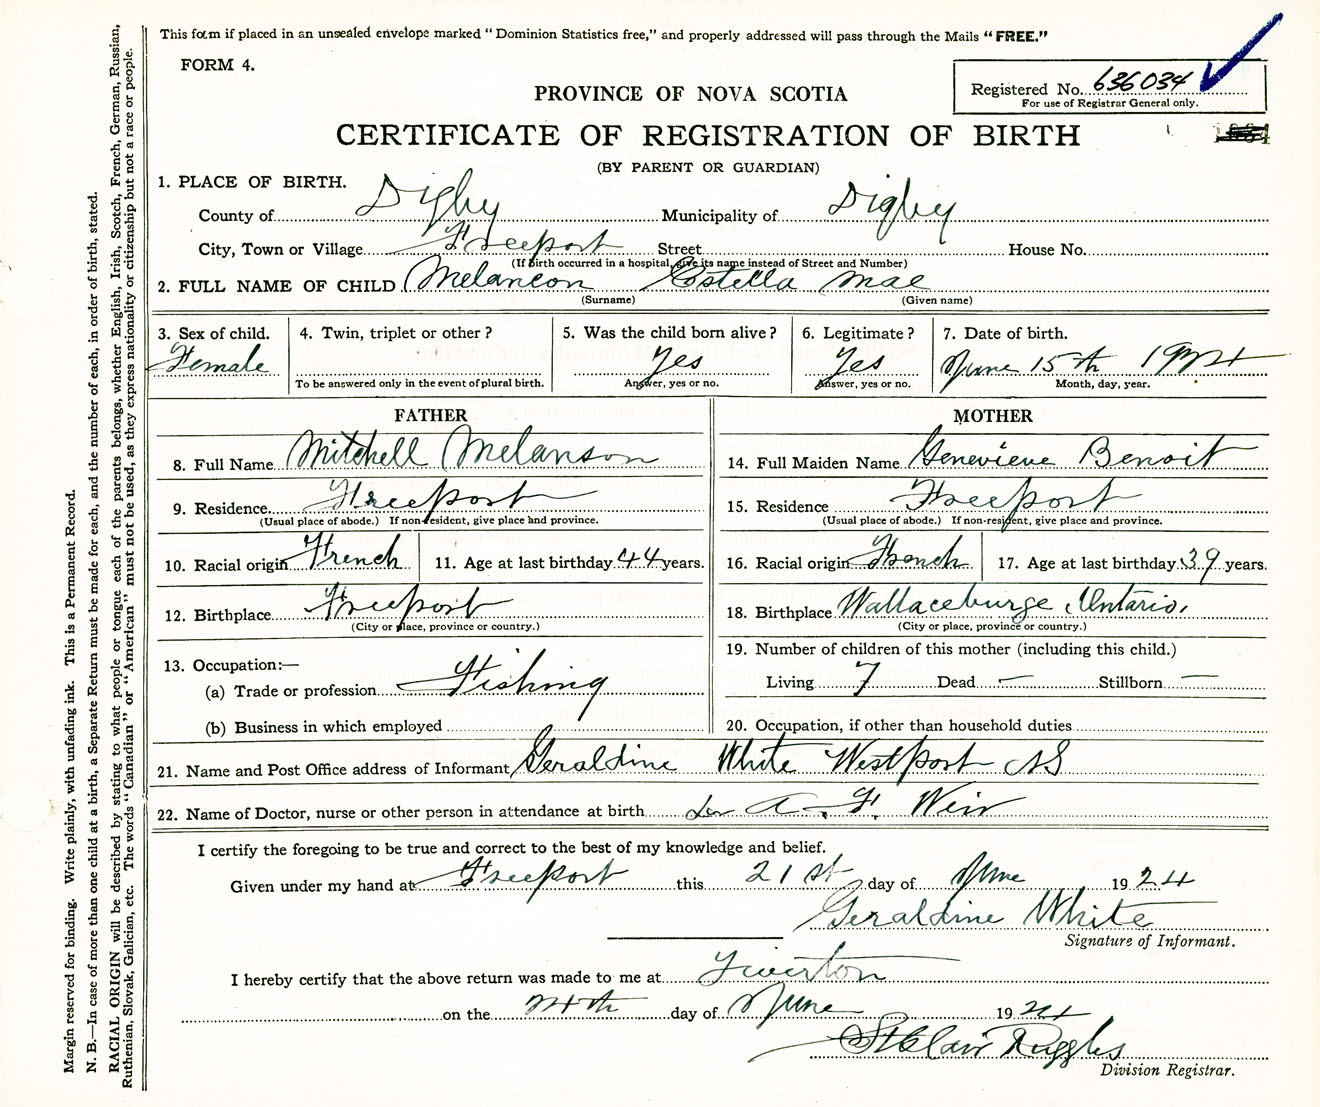 This form if placed in an unsealed envelope marked "Dominion Statistics free," and properly addressed will pass through the Mails "FREE."
FORM 4.
Registered No. 636034
For use of Registrar General only.
PROVINCE OF NOVA SCOTIA
CERTIFICATE OF REGISTRATION OF BIRTH
(BY PARENT OR GUARDIAN)
1. PLACE OF BIRTH.
County of Digby Municipality of Digby
City, Town or Village Freeport Street House No.
(If birth occurred in a hospital, give its name instead of Street and Number)
2. FULL NAME OF CHILD Melancon Estella Mae
(Surname) (Given name)
3. Sex of child. 4. Twin, triplet or other? 5. Was the child born alive? 6. Legitimate? 7. Date of birth.
Female Yes Yes June 15th 1924
To be answered only in the event of plural birth. Answer, yes or no. Answer, yes or no. Month, day, year.
FATHER
8. Full Name Mitchell Melanson
9. Residence Freeport
(Usual place of abode.) If non-resident, give place and province.
10. Racial origin French 11. Age at last birthday 44 years.
12. Birthplace Freeport
(City or place, province or country.)
13. Occupation:—
(a) Trade or profession Fishing
(b) Business in which employed
MOTHER
14. Full Maiden Name Genevieve Benoit
15. Residence Freeport
(Usual place of abode.) If non-resident, give place and province.
16. Racial origin French 17. Age at last birthday 39 years.
18. Birthplace Wallaceburge Ontario,
(City or place, province or country.)
19. Number of children of this mother (including this child.)
Living 7 Dead — Stillborn —
20. Occupation, if other than household duties
21. Name and Post Office address of Informant Geraldine White Westport NS
22. Name of Doctor, nurse or other person in attendance at birth Dr A. F. Weir
I certify the foregoing to be true and correct to the best of my knowledge and belief.
Given under my hand at Freeport this 21st day of June 1924
Geraldine White
Signature of Informant.
I hereby certify that the above return was made to me at Tiverton
on the 24th day of June 1924
St Clair Ruggles
Division Registrar.
Margin reserved for binding. Write plainly, with unfading ink. This is a Permanent Record.
N. B.—In case of more than one child at a birth, a Separate Return must be made for each, and the number of each, in order of birth, stated.
RACIAL ORIGIN will be described by stating to what people or tongue each of the parents belongs, whether English, Irish, Scotch, French, German, Russian,
Ruthenian, Slovak, Galician, etc. The words "Canadian" or "American" must not be used, as they express nationality or citizenship but not a race or people.